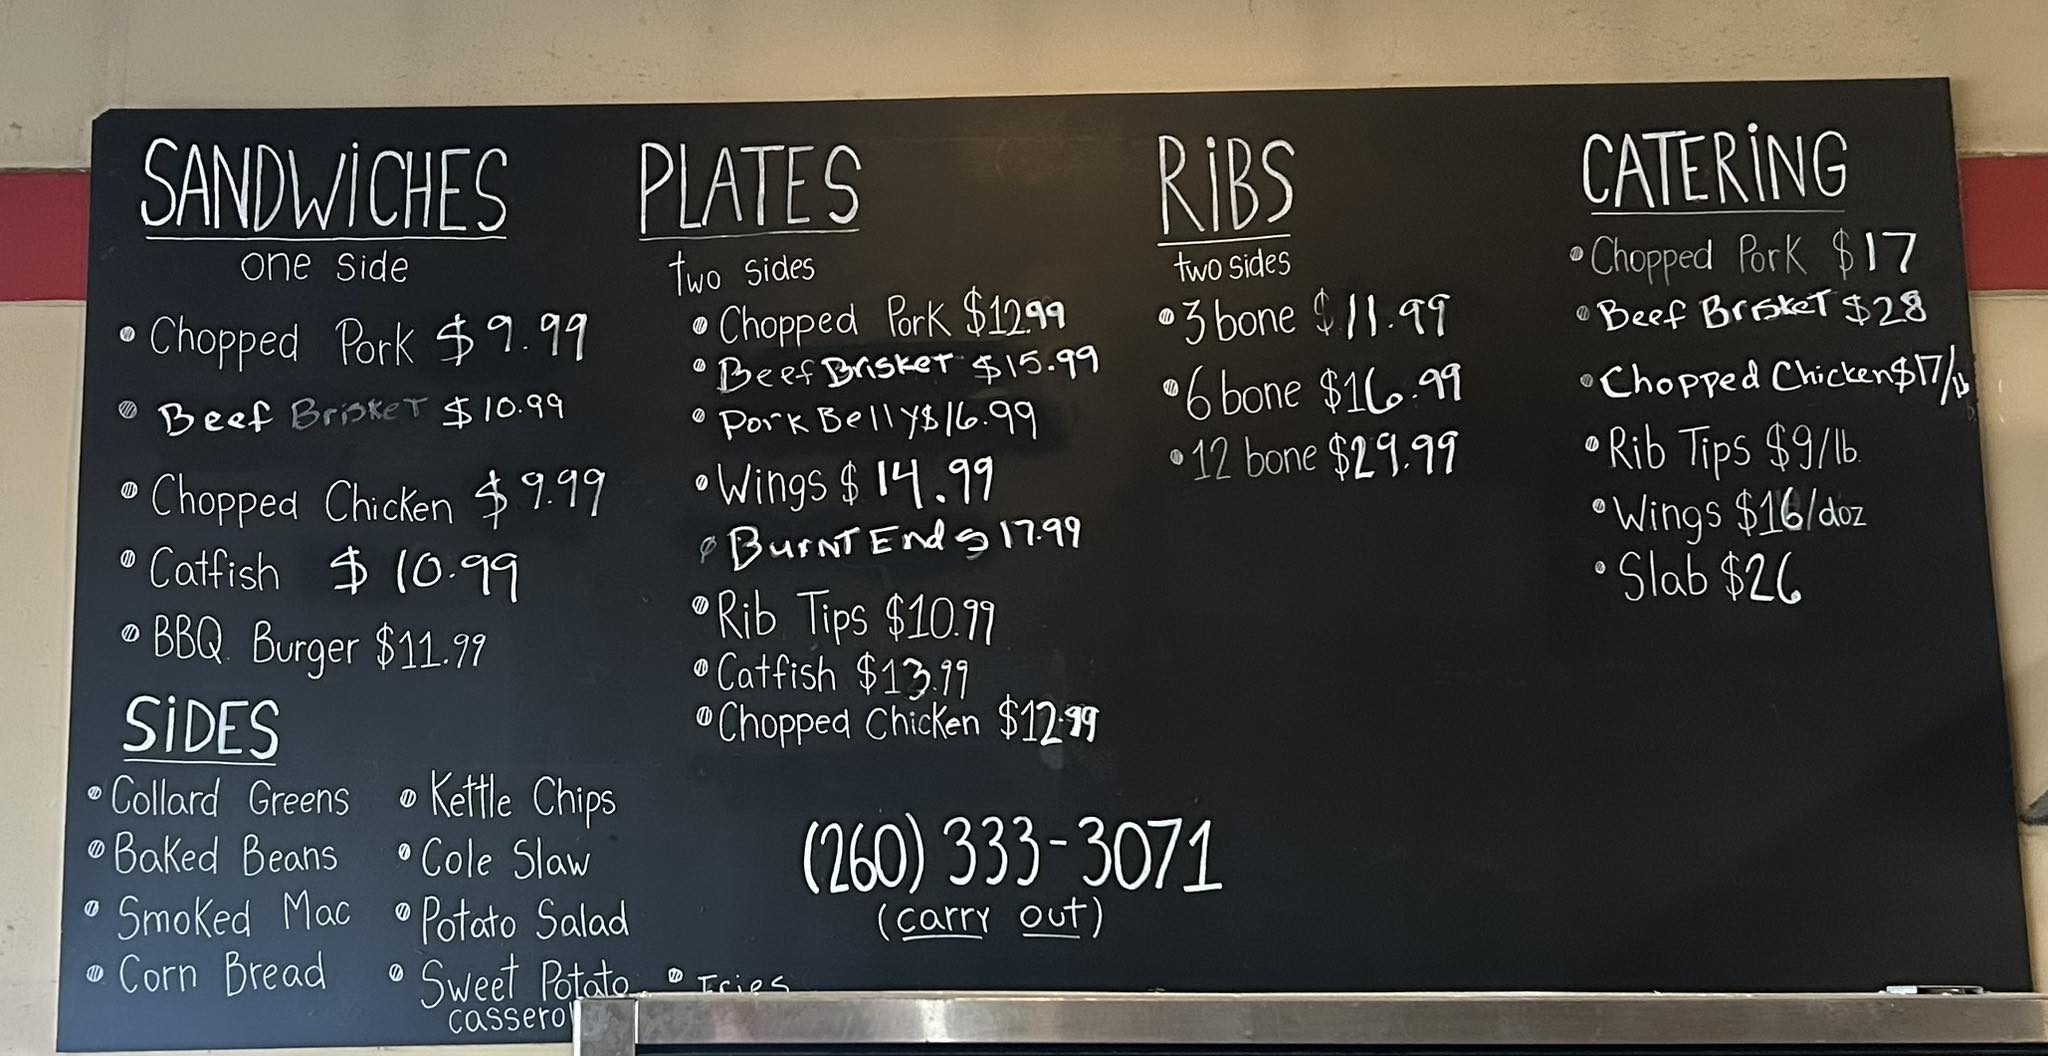 SANDWiCHES
one side
• Chopped Pork $9.99
• Beef Brisket $10.99
• Chopped Chicken $9.99
• Catfish $10.99
• BBQ Burger $11.99
SiDES
• Collard Greens
• Baked Beans
• Smoked Mac
• Corn Bread
• Kettle Chips
• Cole Slaw
• Potato Salad
• Sweet Potato
• Fries
PLATES
two sides
• Chopped Pork $12.99
• Beef Brisket $15.99
• Pork Belly $16.99
• Wings $14.99
• Burnt Ends 17.99
• Rib Tips $10.99
• Catfish $13.99
• Chopped Chicken $12.99
RiBS
two sides
• 3 bone $11.99
• 6 bone $16.99
• 12 bone $29.99
CATERiNG
• Chopped Pork $17
• Beef Brisket $28
• Chopped Chicken $17/lb
• Rib Tips $9/lb.
• Wings $16/doz
• Slab $26
(260) 333-3071
(carry out)